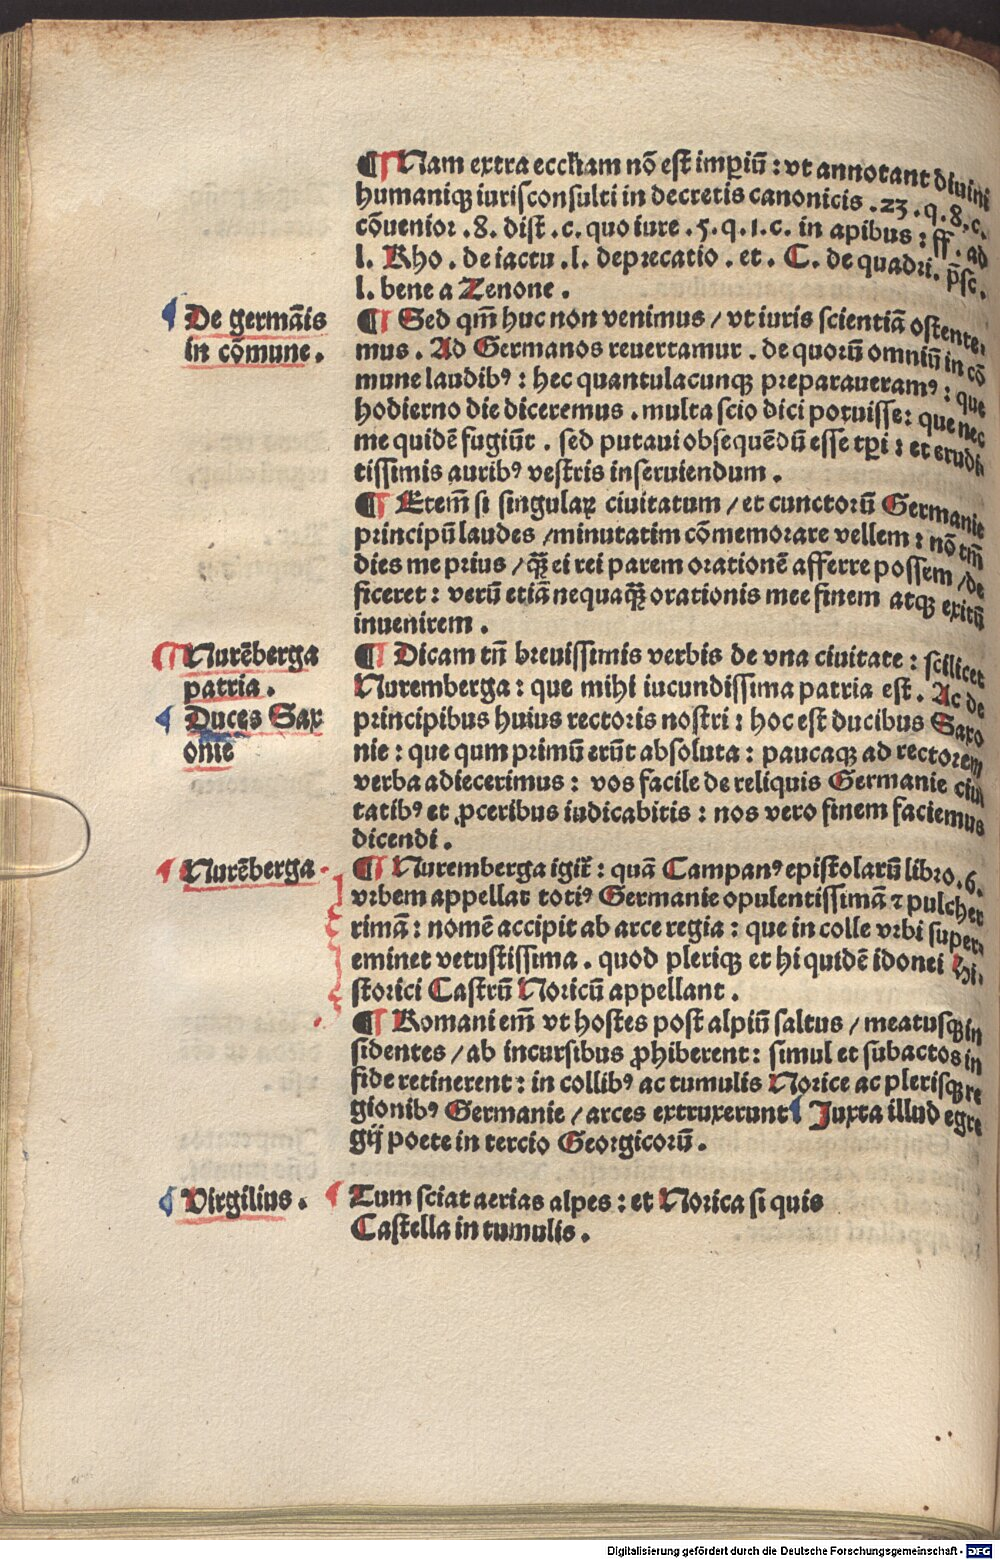 ¶ Nam extra eccl̄iam nō est impiū : vt annotant diuini
humaniqꝫ iurisconsulti in decretis canonicis . 23 . q . 8 . c .
cōuenior . 8 . dist . c . quo iure . 5 . q . 1 . c . in apibus : ff . ad
l . Rho . de iactu . l . deprecatio . et . C . de quadri . p̄sc .
l . bene a Zenone .
De germāis
in cōmune .
¶ Sed qm̄ huc non venimus / vt iuris scientiā ostente⸗
mus . Ad Germanos reuertamur . de quorū omniū in cō
mune laudibꝰ : hec quantulacunqꝫ preparaueramꝰ : que
hodierno die diceremus . multa scio dici potuisse : que nec
me quidē fugiūt . sed putaui obsequēdū esse tp̄i : et erudi
tissimis auribꝰ vestris inseruiendum .
¶ Etem̄ si singulaꝝ ciuitatum / et cunctorū Germanie
principū laudes / minutatim cōmemorare vellem : nō tm̄
dies me prius / qꝫ̄ ei rei parem orationē afferre possem / de
ficeret : verū etiā nequaqꝫ̄ orationis mee finem atqꝫ exitū
inuenirem .
Nurēberga
patria .
Duces Sax
onie
¶ Dicam tn̄ breuissimis verbis de vna ciuitate : scilicet
Nuremberga : que mihi iucundissima patria est . Ac de
principibus huius rectoris nostri : hoc est ducibus Saxo
nie : que qum primū erūt absoluta : paucaqꝫ ad rectorem
verba adiecerimus : vos facile de reliquis Germanie ciui
tatibꝰ et ꝓceribus iudicabitis : nos vero finem faciemus
dicendi .
Nurēberga .
¶ Nuremberga igit᷑ : quā Campanꝰ epistolarū libro . 6 .
vrbem appellat totiꝰ Germanie opulentissimā ⁊ pulcher
rimā : nomē accipit ab arce regia : que in colle vrbi super⸗
eminet vetustissima . quod pleriqꝫ et hi quidē idonei hi⸗
storici Castrū Noricū appellant .
¶ Romani em̄ vt hostes post alpiū saltus / meatusqꝫ in
sidentes / ab incursibus ꝓhiberent : simul et subactos in
fide retinerent : in collibꝰ ac tumulis Norice ac plerisqꝫ re
gionibꝰ Germanie / arces extruxerunt Juxta illud egre
gij poete in tercio Georgicorū .
Virgilius .
Tum sciat aerias alpes : et Norica si quis
Castella in tumulis .
Digitalisierung gefördert durch die Deutsche Forschungsgemeinschaft - DFG